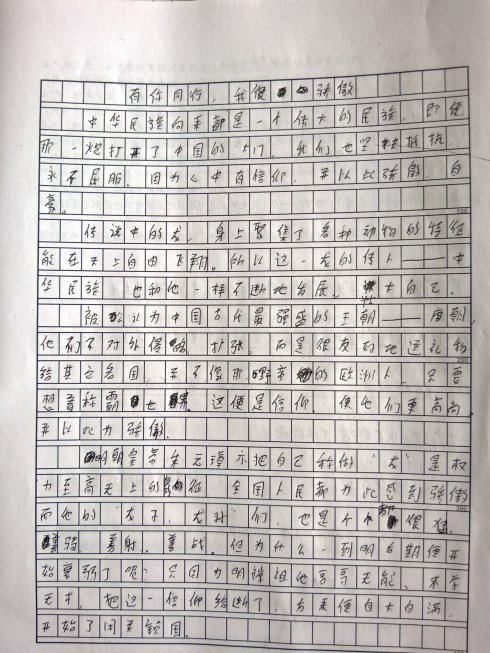 有信同行,我很骄傲
中华民族向来都是一个伟大的民族,即使
那一炮打开了中国的大门,我们也坚持抵抗,
永不屈服。因为心中有信仰,并以此骄傲,自
豪。
传说中的龙,身上聚集了各种动物的特征
能在天上自由飞翔。所以这一龙的传人——中
华民族,也和他一样不断地发展、壮大自己。
被公认为中国古代最强盛的王朝——唐朝,
他们不对外侵略,扩张,而是很友好地送礼物
给其它各国,并不像那野蛮的欧洲人,只要
想着称霸世界。这便是信仰,使他们更高尚
并以此为骄傲。
明朝皇帝朱元璋亦把自己称做“龙”是权
力至高无上的象征,全国人民都为此感到骄傲
而他的“龙子、龙孙”们,也是个个都很猛,
善骑、善射、善战。但为什么一到明后期便开
始衰弱了呢?只因为明诸祖他哥哥无能、不学
无术,把这一信仰给断了,方来便自大自满,
开始了闭关锁国。
100
200
300